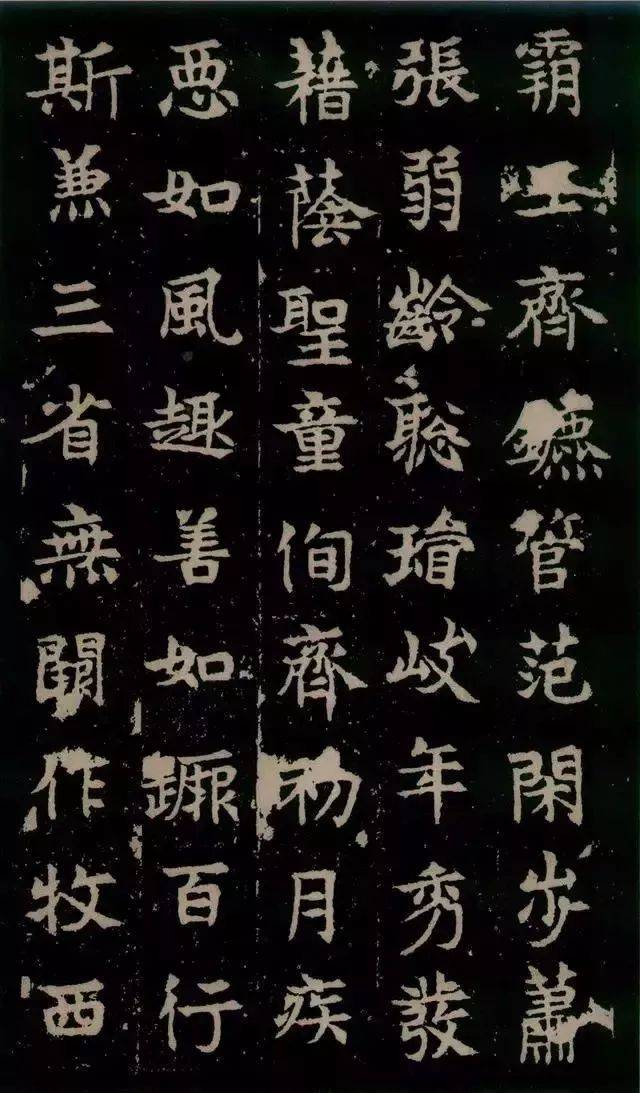 霸王齊鑣管范閑步蕭
張弱齡聡岐年秀發
藉蔭聖童侚齊初月疾
惡如風趣善如百行
斯兼三省無闕作牧西